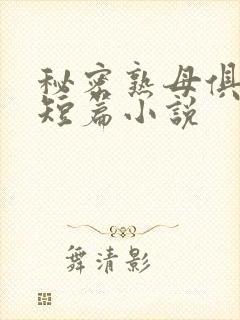 秘密熟母俱
短篇小说
舞清影